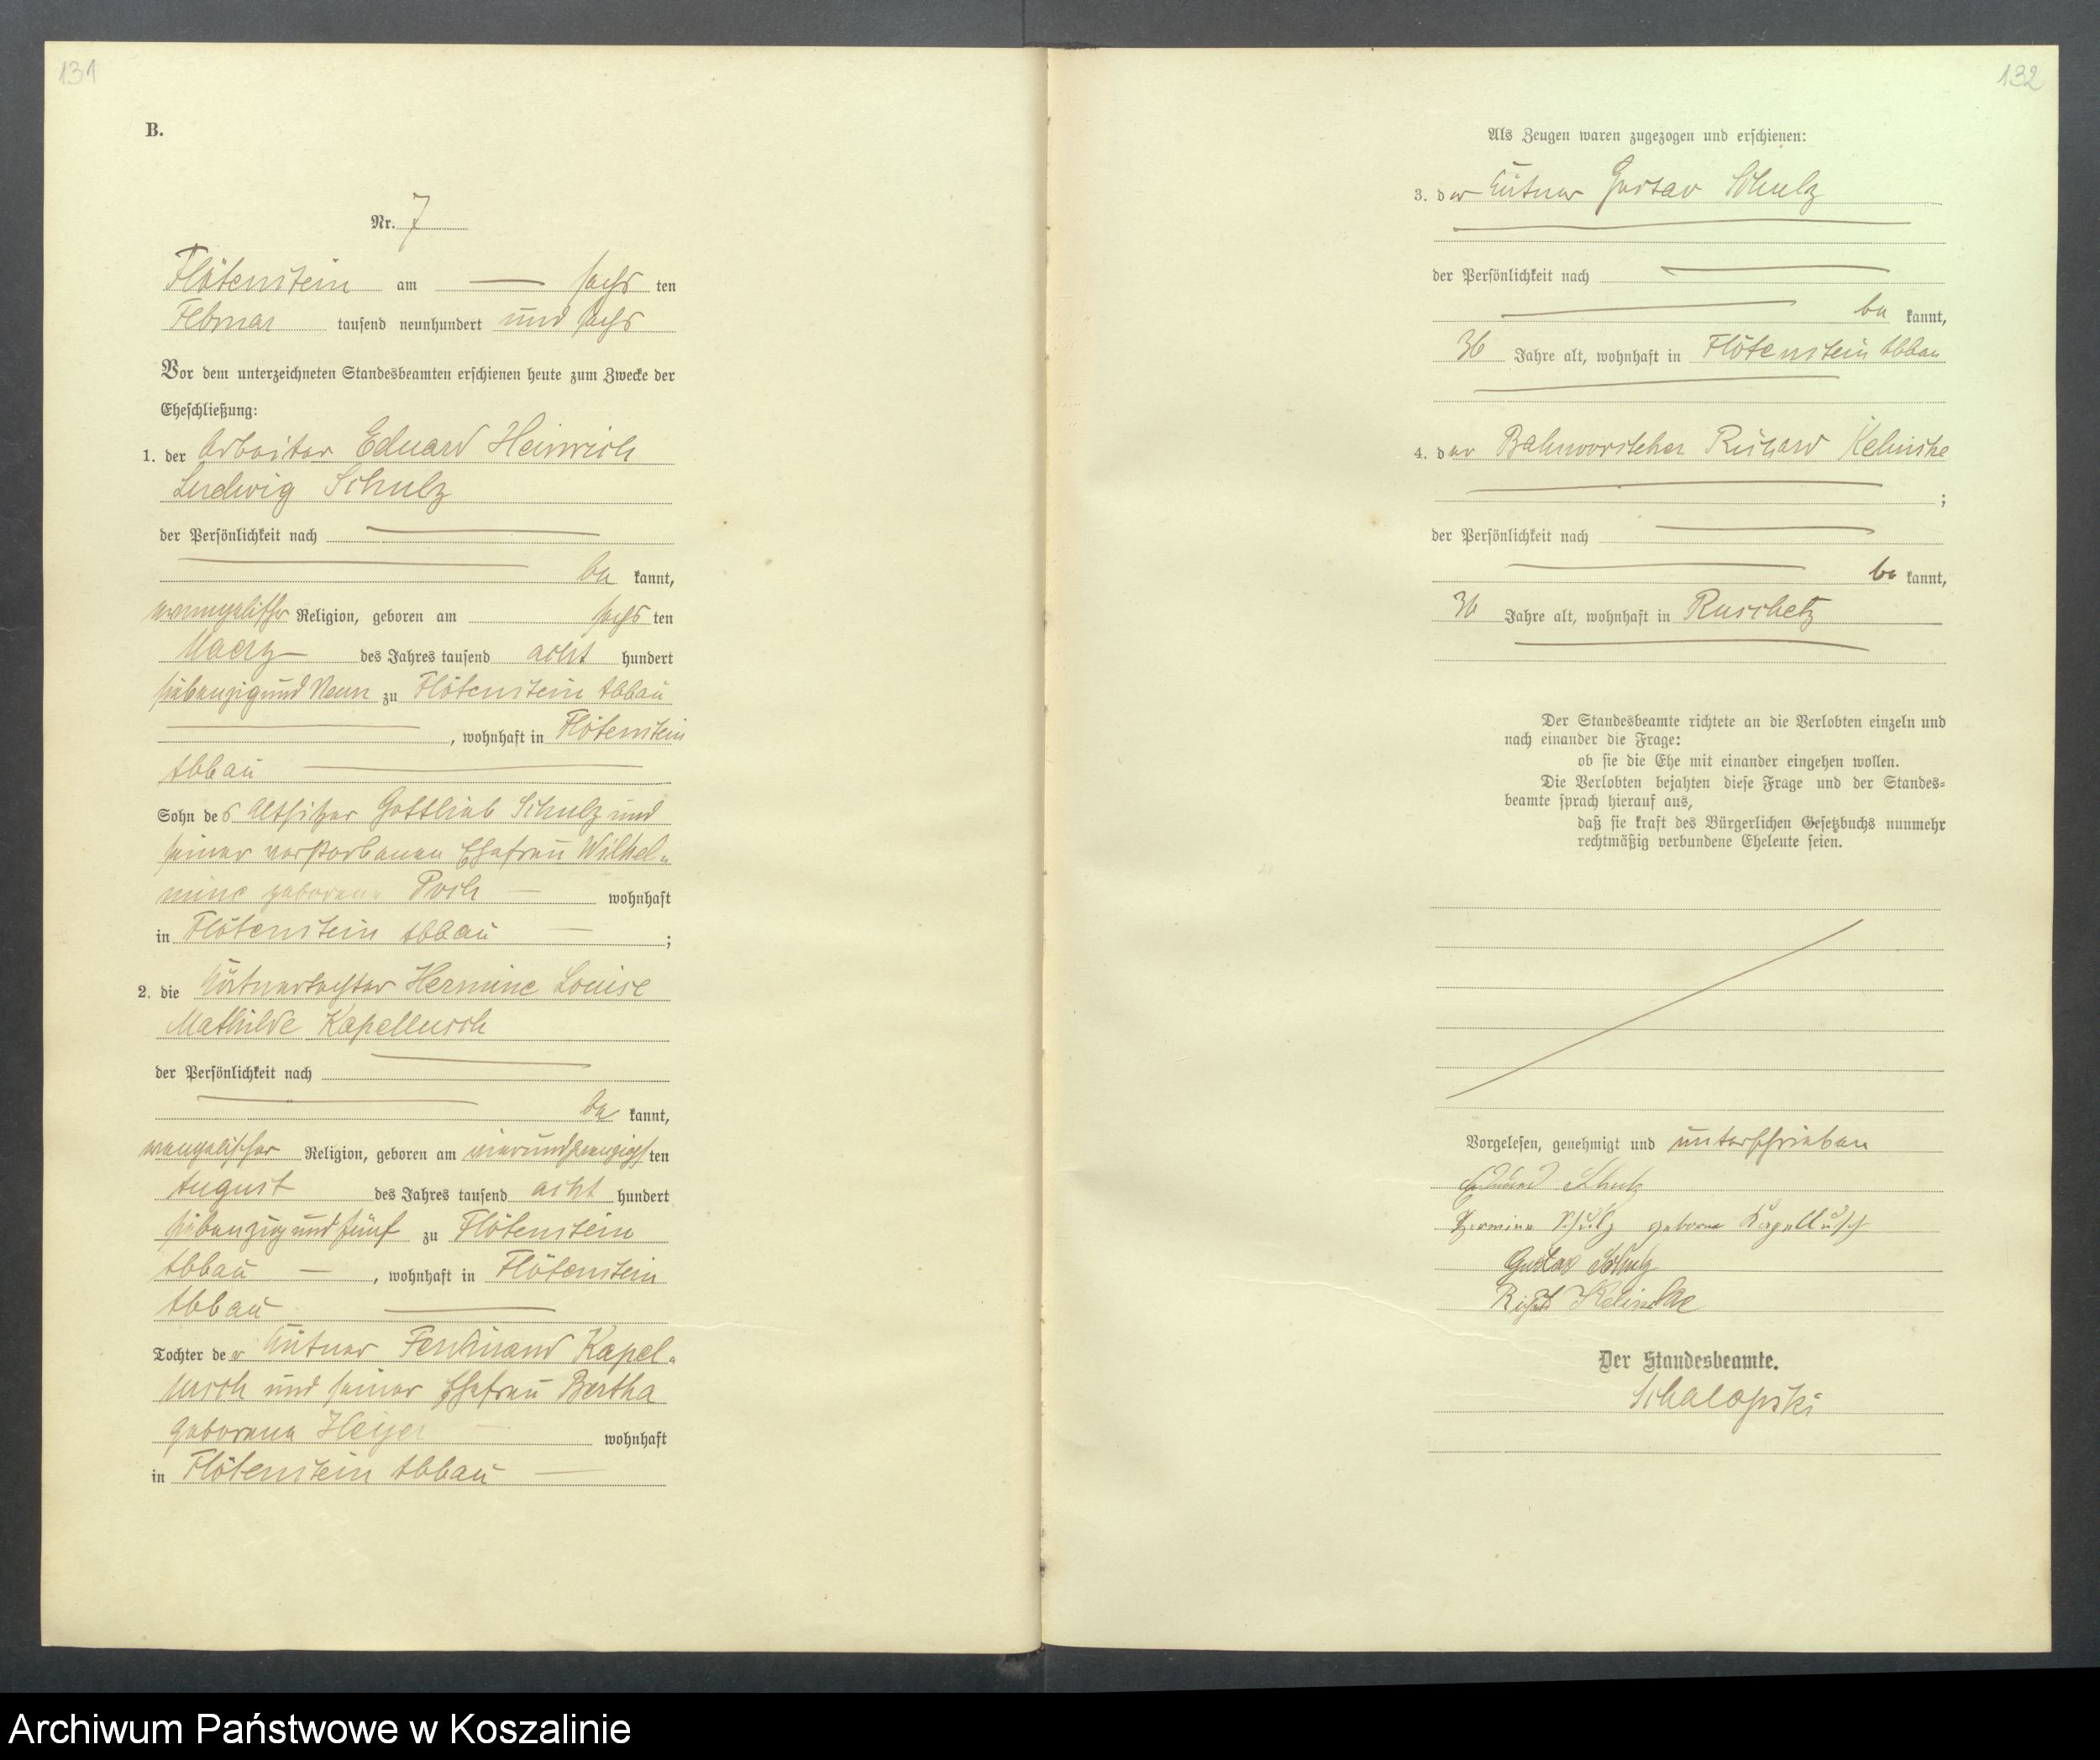 131
B.
Nr. 7
Flötenstein am sechs ten
Februar tausend neunhundert und sechs
Vor dem unterzeichneten Standesbeamten erschienen heute zum Zwecke der
Eheschließung:
1. der Arbeiter Eduard Heinrich
Ludwig Schulz
der Persönlichkeit nach
be kannt,
evangelischer Religion, geboren am sechs ten
Maerz des Jahres tausend acht hundert
siebenzig und Neun zu Flötenstein Abbau
, wohnhaft in Flötenstein
Abbau
Sohn des Altsitzer Gottlieb Schulz und
seiner verstorbenen Ehefrau Wilhel-
mine geborene Poch wohnhaft
in Flötenstein Abbau ;
2. die Hermine Louise
Mathilde Kapellusch
der Persönlichkeit nach
be kannt,
evangelischer Religion, geboren am vierundzwanzigsten
August des Jahres tausend acht hundert
siebenzig und fünf zu Flötenstein
Abbau , wohnhaft in Flötenstein
Abbau
Tochter der Ferdinand Kapel-
lusch und seiner Ehefrau Bertha
geborene Heyer wohnhaft
in Flötenstein Abbau
132
Als Zeugen waren zugezogen und erschienen:
3. der Gustav Schulz
der Persönlichkeit nach
be kannt,
36 Jahre alt, wohnhaft in Flötenstein Abbau
4. der Bahnvorsteher Richard
;
der Persönlichkeit nach
be kannt,
36 Jahre alt, wohnhaft in Ruschetz
Der Standesbeamte richtete an die Verlobten einzeln und
nach einander die Frage:
ob sie die Ehe mit einander eingehen wollen.
Die Verlobten bejahten diese Frage und der Standes-
beamte sprach hierauf aus,
daß sie kraft des Bürgerlichen Gesetzbuchs nunmehr
rechtmäßig verbundene Eheleute seien.
Vorgelesen, genehmigt und unterschrieben
Eduard Schulz
Hermine Schulz geborne Kapellusch
Gustav Schulz
Der Standesbeamte.
Schalopski
Archiwum Państwowe w Koszalinie